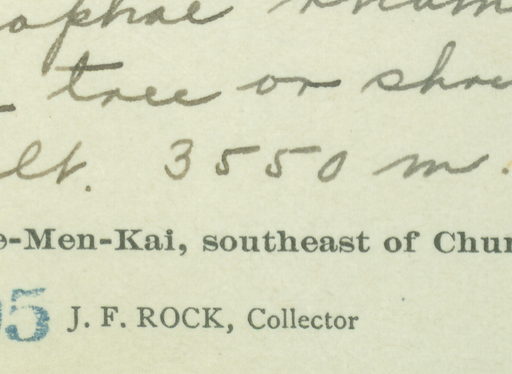 tree or
alt. 3550 m.
e-Men-Kai, southeast of Chun
5 J. F. ROCK, Collector